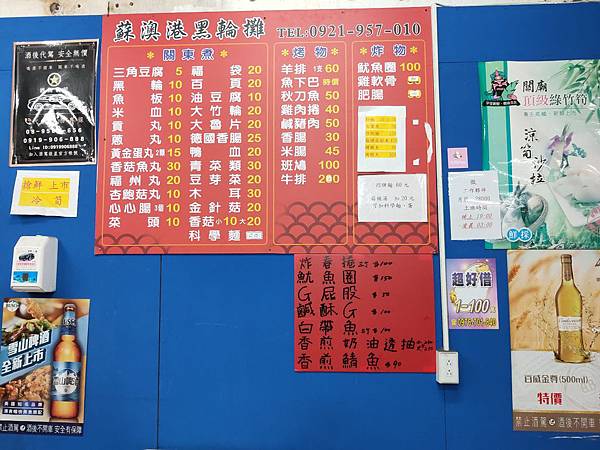 蘇澳港黑輪攤 TEL:0921-957-010
*關東煮*
三角豆腐 5
黑輪 10
魚板 10
米血 10
貢丸 10
蔥丸 10
黃金蛋丸2顆 15
香菇魚丸 15
福州丸 20
杏鮑菇丸 10
心心腸3個 10
菜頭 10
福袋 20
百頁 20
油豆腐 10
大竹輪 20
大魯片 20
德國香腸 20
鴨血 20
青菜類 30
豆芽菜 20
木耳 30
金針菇 20
香菇小10大20
科學麵
*烤物*
羊排1支60
魚下巴 時價
秋刀魚 50
雞肉捲 40
鹹豬肉 50
香腸 30
米腸 45
斑鳩 100
牛排 200
*炸物*
魷魚圈 100
雞軟骨
肥腸
酒後代駕 安全無價
0919-906-888
搶鮮 上市
冷筍
關廟
頂級綠竹筍
涼筍沙拉
鮮採
徵
工作夥伴
超好借
1-100
炸春捲 $100
魷魚圈 $150
G屁股 $50
鹹酥G $100
白帶魚 $100
香煎奶油透抽
香煎鯖魚 $90
雪山啤酒
全新上市
禁止酒駕 酒後不開車 安全有保障
百威金尊(500ml)
特價
禁止酒駕 酒後不開車